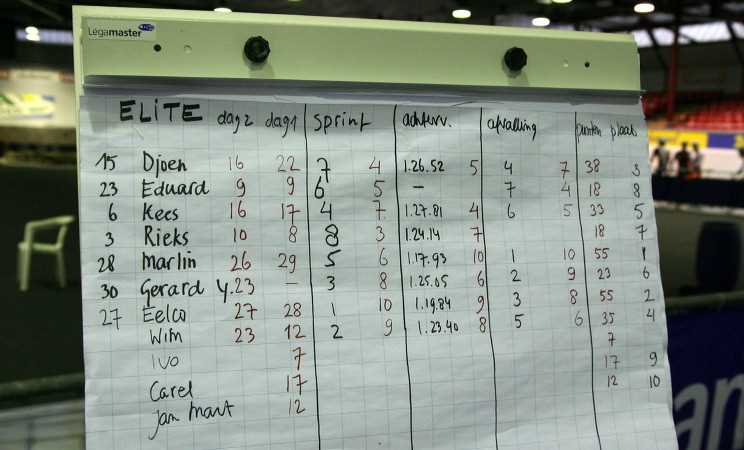 Legamaster
ELITE dag2 dag1 sprint achterv. afvalling punten plaats
15 Djoen 16 22 7 4 1.26.52 5 4 7 38 3
23 Eduard 9 9 6 5 — 7 4 18 8
6 Kees 16 17 4 7 1.27.81 4 6 5 33 5
3 Rieks 10 8 8 3 1.24.14 7 18 7
28 Marlin 26 29 5 6 1.17.93 10 1 10 55 1
30 Gerard Y. 23 — 3 8 1.25.05 6 2 9 23 6
27 Eelco 27 28 1 10 1.19.84 9 3 8 55 2
Wim 23 12 2 9 1.23.40 8 5 6 35 4
Ivo 7 7
Carel 17 17 9
Jan Maart 12 12 10
an